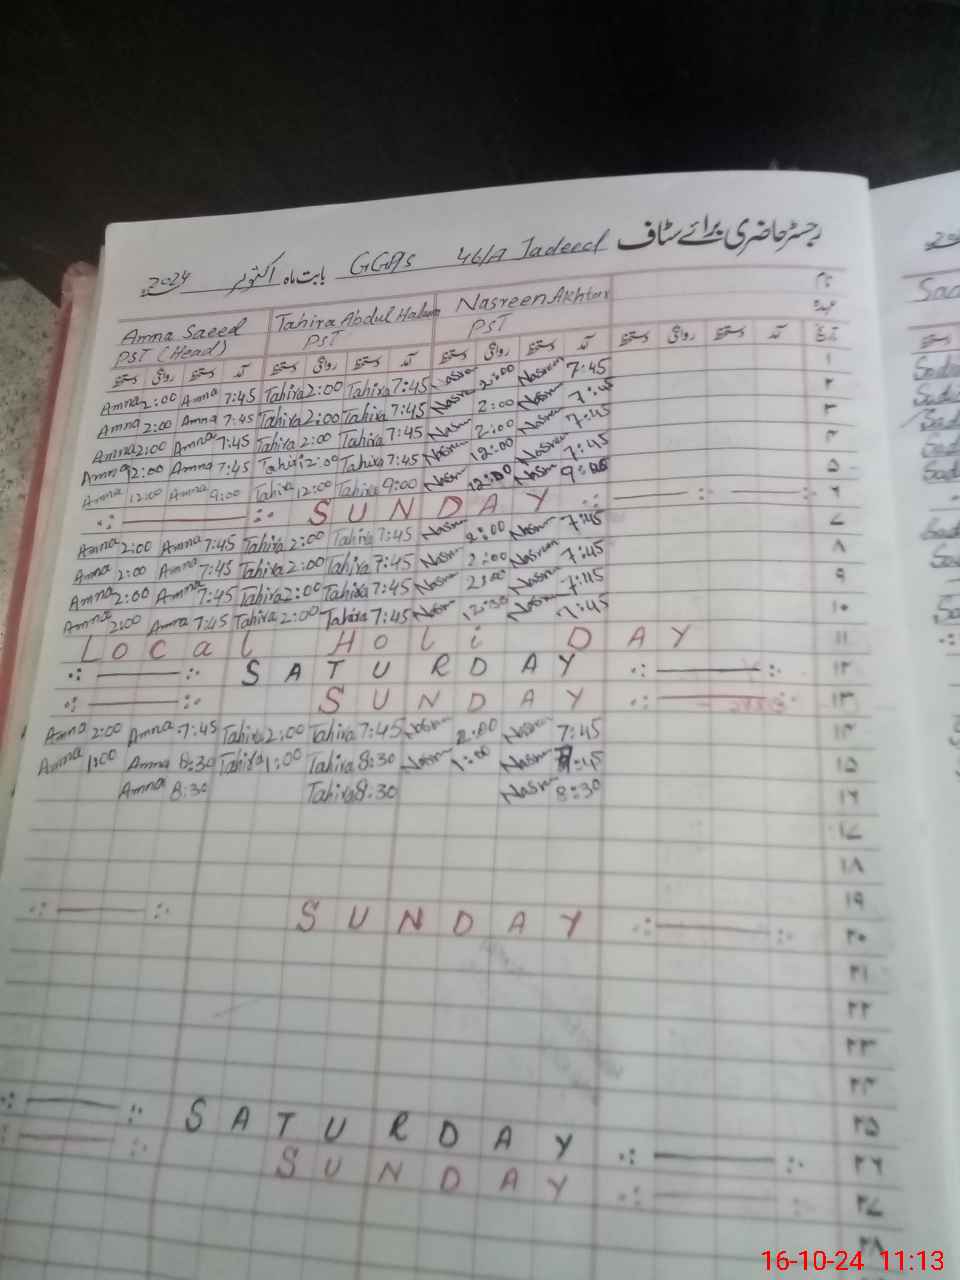 رجسٹر حاضری برائے سٹاف GGPs 46/A Jadeed بابت ماہ اکتوبر 2024
نام
عہدہ
Amna Saeed Tahira Abdul Haleem Nasreen Akhtar
PST (Head) PST PST
تاریخ آمد دستخط روانگی دستخط آمد دستخط روانگی دستخط آمد دستخط روانگی دستخط آمد دستخط روانگی دستخط
Amna 2:00 Amna 7:45 Tahira 2:00 Tahira 7:45 Nasreen 2:00 Nasreen 7:45 ۱
Amna 2:00 Amna 7:45 Tahira 2:00 Tahira 7:45 Nasreen 2:00 Nasreen 7:45 ۲
Amna 2:00 Amna 7:45 Tahira 2:00 Tahira 7:45 Nasreen 2:00 Nasreen 7:45 ۳
Amna 12:00 Amna 7:45 Tahira 12:00 Tahira 7:45 Nasreen 12:00 Nasreen 7:45 ۴
Amna 12:00 Amna 9:00 Tahira 12:00 Tahira 9:00 Nasreen 12:00 Nasreen 9:00 ۵
SUNDAY ۶
Amna 2:00 Amna 7:45 Tahira 2:00 Tahira 7:45 Nasreen 2:00 Nasreen 7:45 ۷
Amna 2:00 Amna 7:45 Tahira 2:00 Tahira 7:45 Nasreen 2:00 Nasreen 7:45 ۸
Amna 2:00 Amna 7:45 Tahira 2:00 Tahira 7:45 Nasreen 2:00 Nasreen 7:45 ۹
Amna 2:00 Amna 7:45 Tahira 2:00 Tahira 7:45 Nasreen 12:30 Nasreen 7:45 ۱۰
Local Holi DAY ۱۱
SATURDAY ۱۲
SUNDAY ۱۳
Amna 2:00 Amna 7:45 Tahira 2:00 Tahira 7:45 Nasreen 2:00 Nasreen 7:45 ۱۴
Amna 1:00 Amna 8:30 Tahira 1:00 Tahira 8:30 Nasreen 1:00 Nasreen 7:45 ۱۵
Amna 8:30 Tahira 8:30 Nasreen 8:30 ۱۶
۱۷
۱۸
۱۹
SUNDAY ۲۰
۲۱
۲۲
۲۳
۲۴
۲۵
SATURDAY ۲۶
SUNDAY ۲۷
۲۸
16-10-24 11:13